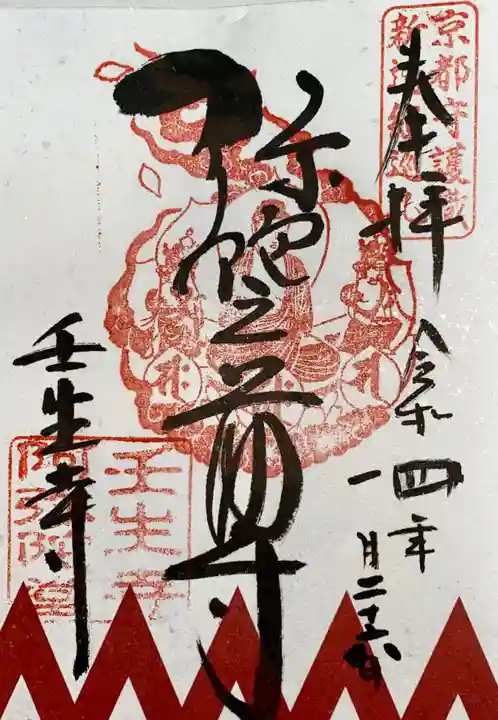 奉拝
京都守護職
新選組巡礼
令和四年
一月二十五日
弥陀之尊
壬生寺
壬生寺
阿弥陀堂